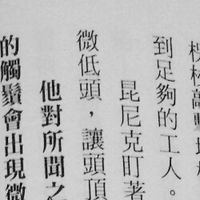 到足夠的工人。
昆尼克盯著
微低頭，讓頭頂
他對所聞之
的觸鬚會出現微